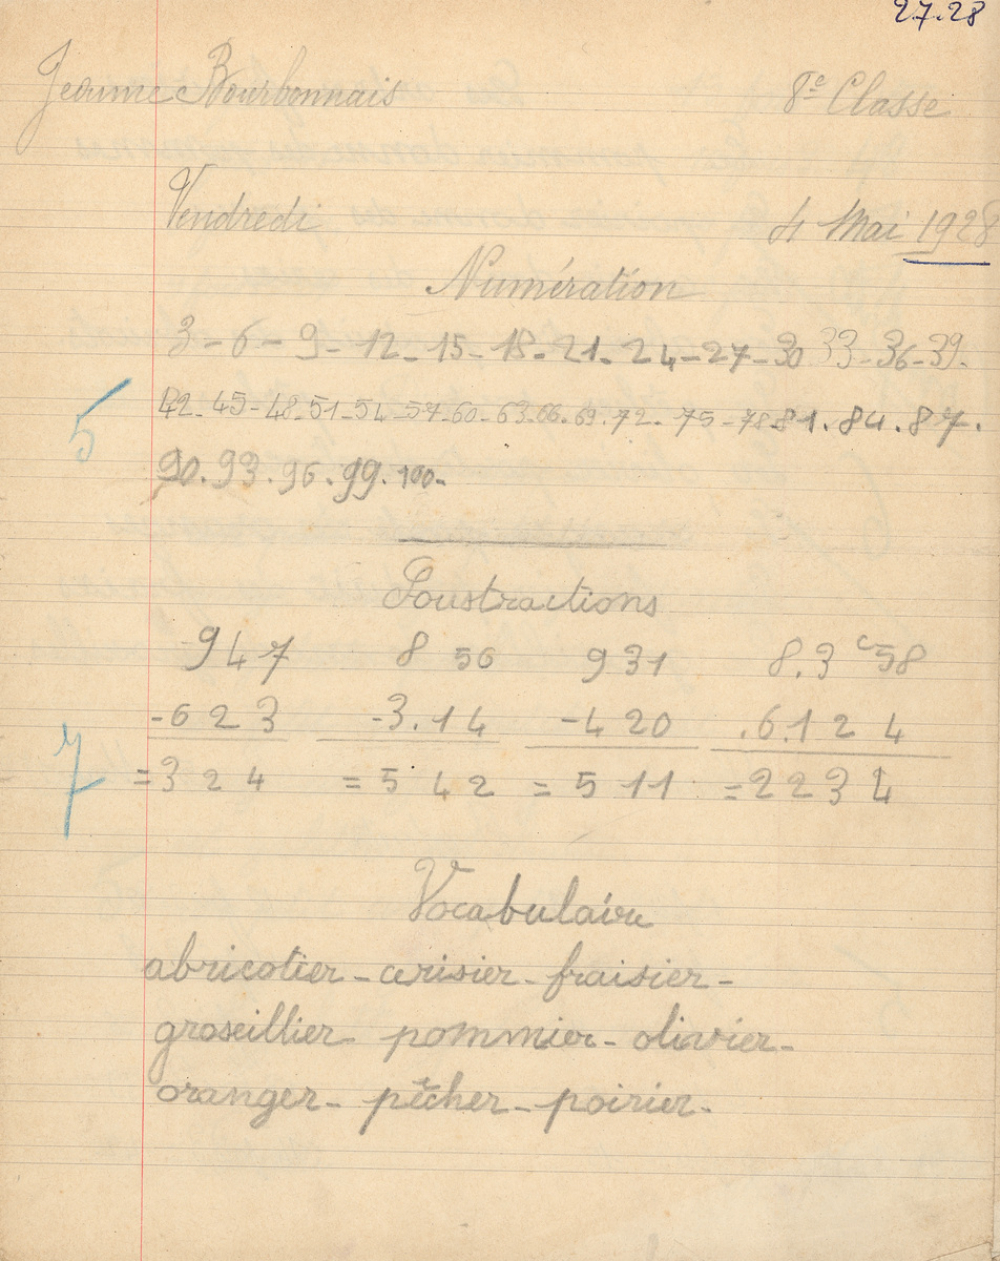 27.28
Jeanne Bourbonnais 8e Classe
Vendredi 4 Mai 1928
Numération
3-6-9-12-15-18-21-24-27-30 33-36-39-
5
42-45-48-51-54-57-60-63-66.69.72-75-78 81.84.87.
90.93.96.99.100-
Soustractions
947 856 931 8.358
-623 -3.14 -420 .6.124
7
=324 =542 =511 =2234
Vocabulaire
abricotier - cerisier - fraisier -
groseillier pommier - olivier -
oranger - pêcher - poirier -